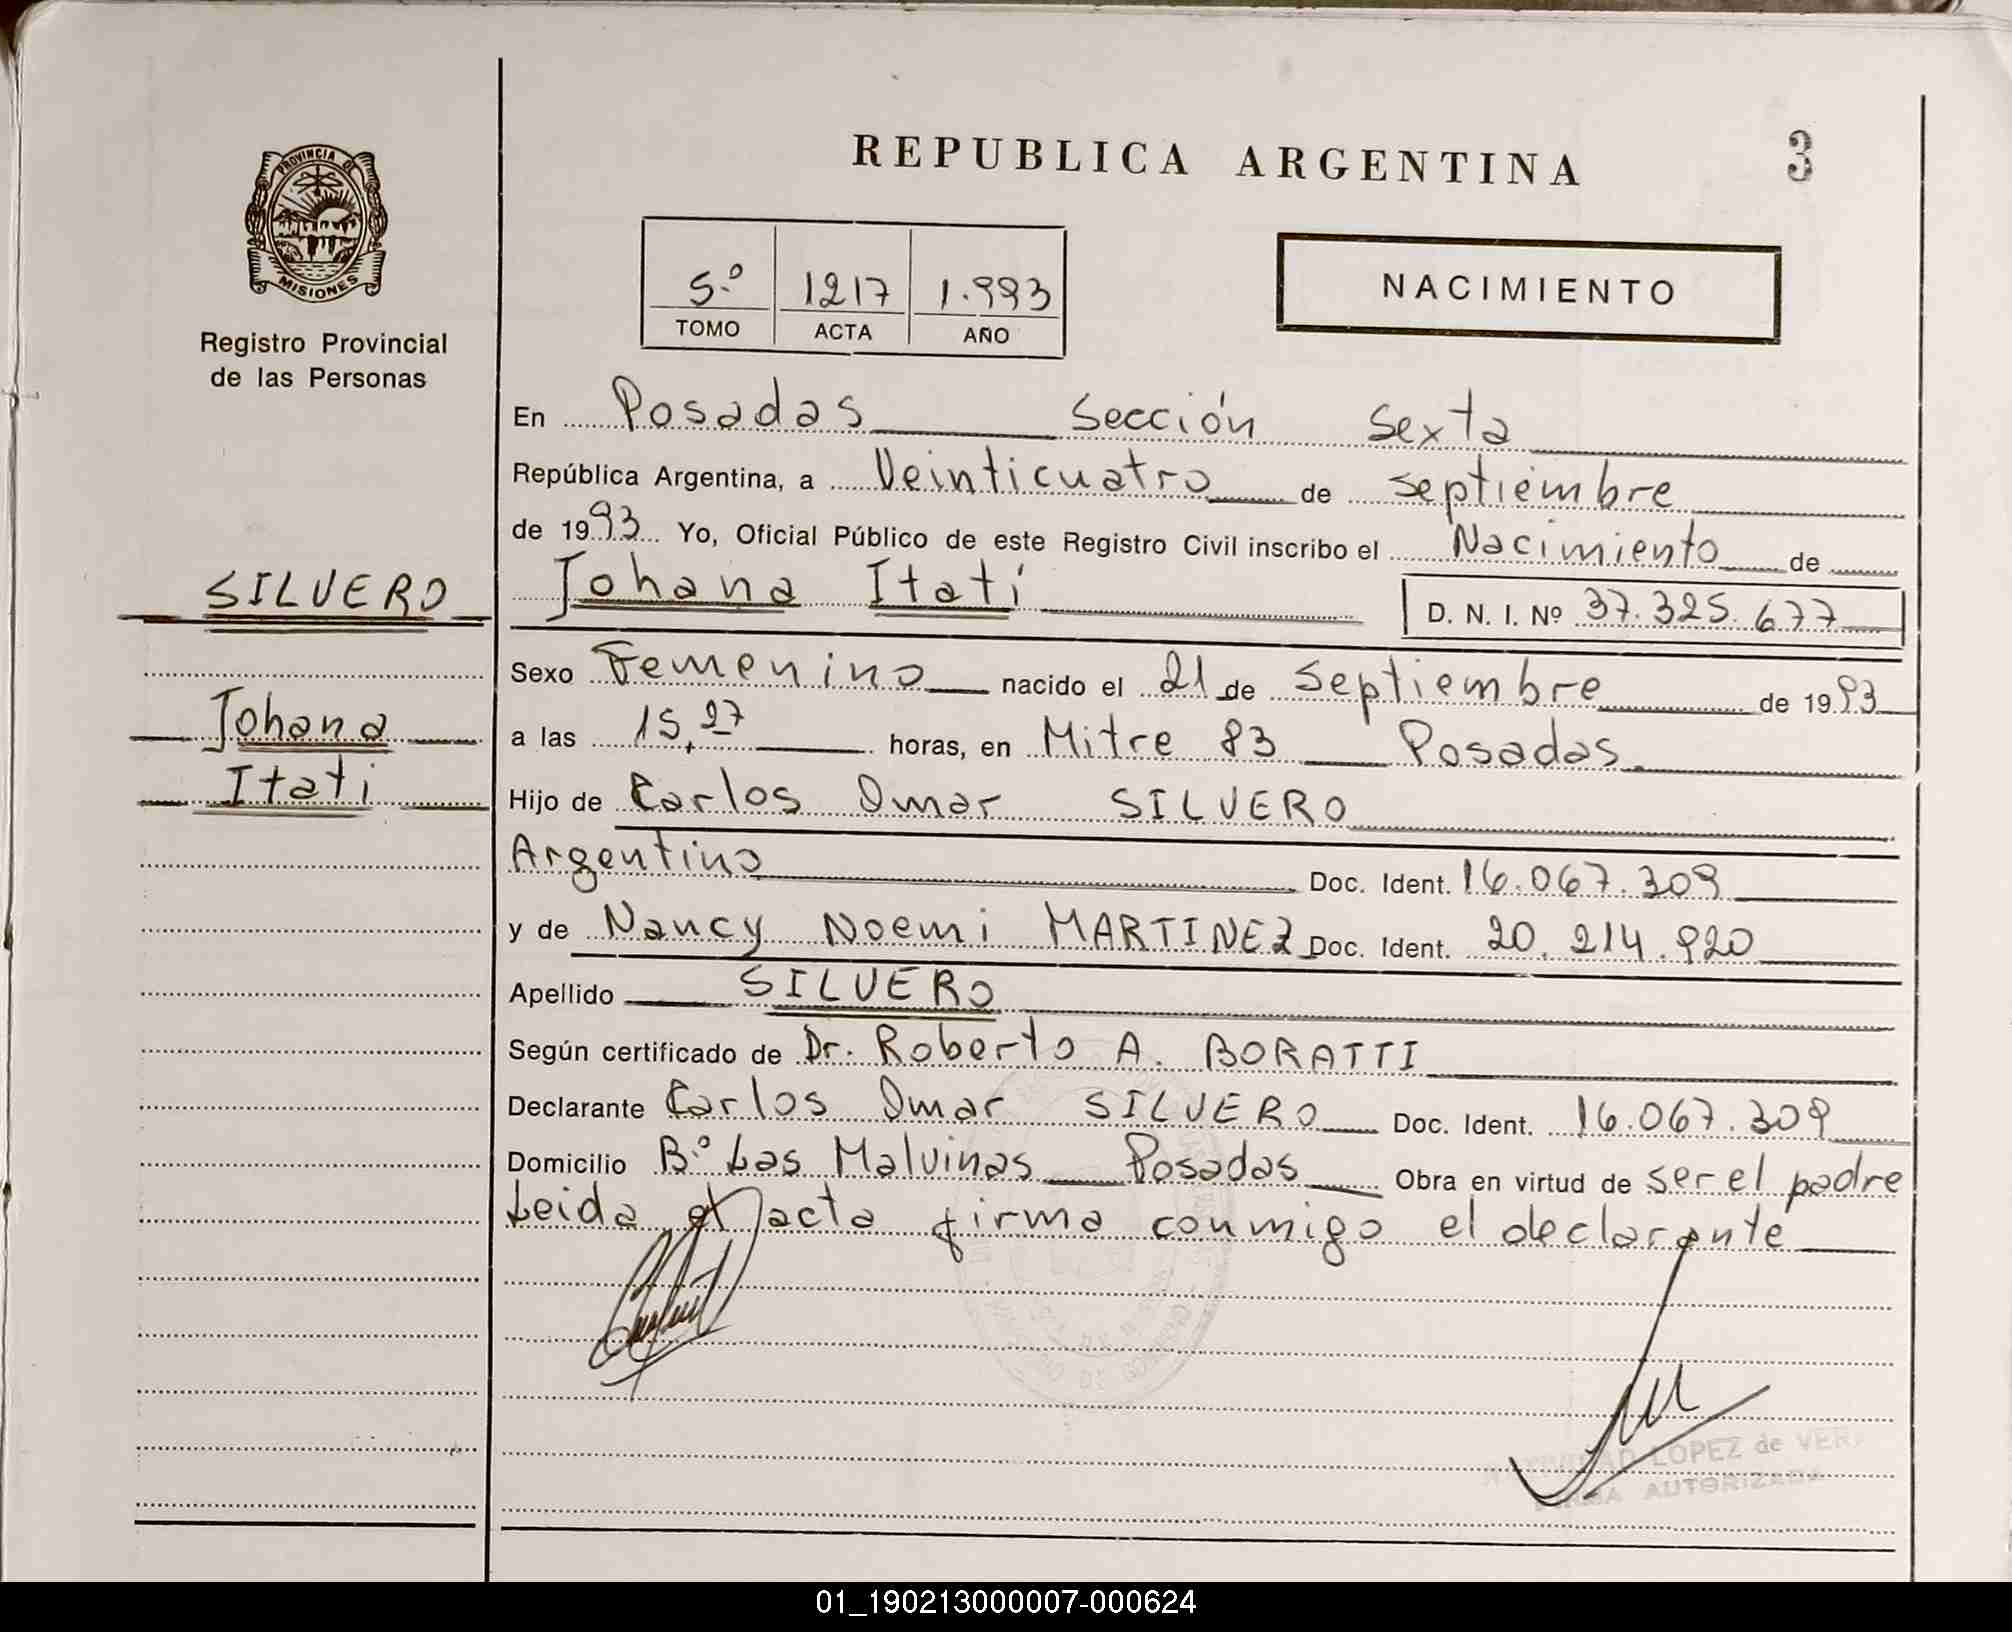 REPUBLICA ARGENTINA
3
PROVINCIA DE
MISIONES
Registro Provincial
de las Personas
5.º 1217 1.993
TOMO ACTA AÑO
NACIMIENTO
En Posadas Sección Sexta
República Argentina, a Veinticuatro de septiembre
de 1993 Yo, Oficial Público de este Registro Civil inscribo el Nacimiento de
SILVERO
Johana Itatí
D. N. I. Nº 37.325.677
Sexo Femenino nacido el 21 de Septiembre de 1993
Johana
a las 15,27 horas, en Mitre 83 Posadas
Itati
Hijo de Carlos Omar SILVERO
Argentino Doc. Ident. 16.067.309
y de Nancy Noemi MARTINEZ Doc. Ident. 20.214.920
Apellido SILVERO
Según certificado de Dr. Roberto A. BORATTI
Declarante Carlos Omar SILVERO Doc. Ident. 16.067.309
Domicilio B.º Las Malvinas Posadas Obra en virtud de ser el padre
Leida el acta firma conmigo el declarante
LOPEZ de
AUTORIZADA
01_190213000007-000624